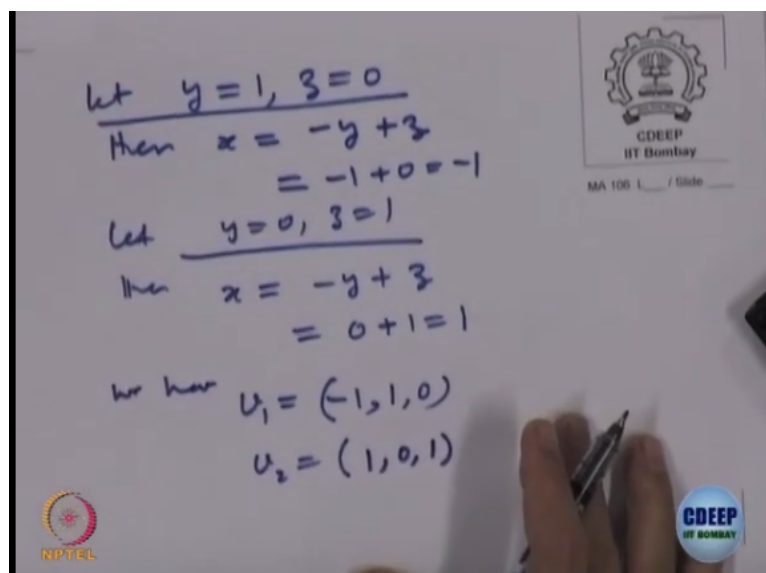 let y = 1, z = 0
then x = -y + z
= -1 + 0 = -1
Let y = 0, z = 1
then x = -y + z
= 0 + 1 = 1
we have v₁ = (-1, 1, 0)
v₂ = (1, 0, 1)
CDEEP
IIT Bombay
MA 106 L___ / Slide ___
NPTEL
CDEEP
IIT BOMBAY